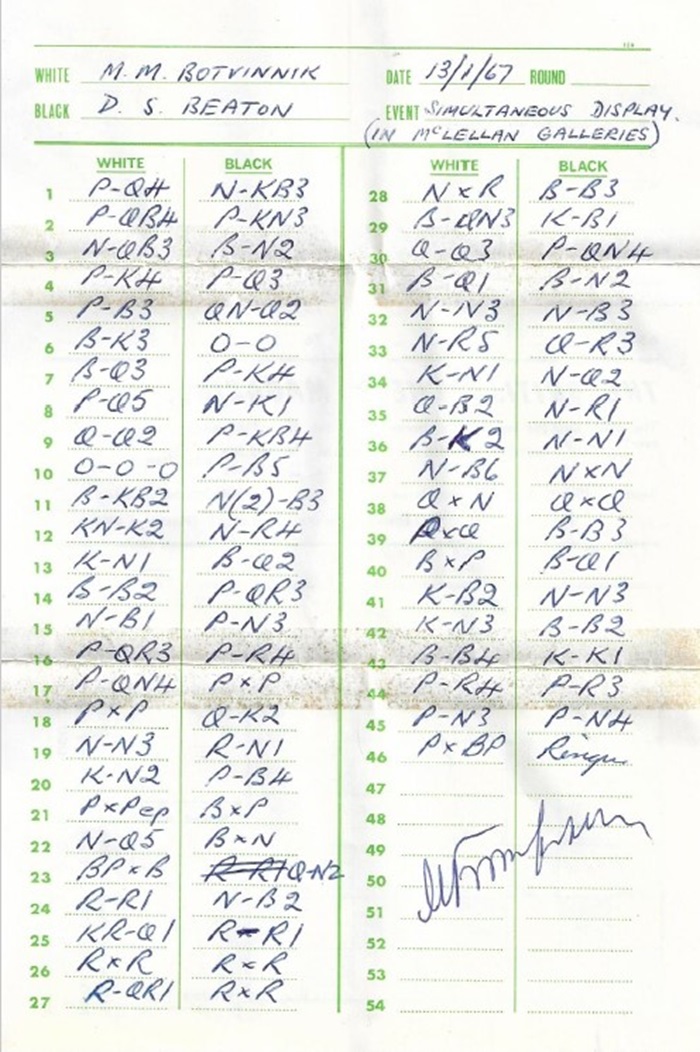 WHITE M. M. BOTVINNIK
BLACK D. S. BEATON
DATE 13/1/67 ROUND
EVENT SIMULTANEOUS DISPLAY.
(IN McLELLAN GALLERIES)
WHITE BLACK
1 P-Q4 N-KB3
2 P-QB4 P-KN3
3 N-QB3 B-N2
4 P-K4 P-Q3
5 P-B3 QN-Q2
6 B-K3 O-O
7 B-Q3 P-K4
8 P-Q5 N-K1
9 Q-Q2 P-KB4
10 O-O-O P-B5
11 B-KB2 N(2)-B3
12 KN-K2 N-R4
13 K-N1 B-Q2
14 B-B2 P-QR3
15 N-B1 P-N3
16 P-QR3 P-R4
17 P-QN4 P×P
18 P×P Q-K2
19 N-N3 R-N1
20 K-N2 P-B4
21 P×Pep B×P
22 N-Q5 B×N
23 BP×B R-R1 Q-N2
24 R-R1 N-B2
25 KR-Q1 R-R1
26 R×R R×R
27 R-QR1 R×R
WHITE BLACK
28 N×R B-B3
29 B-QN3 K-B1
30 Q-Q3 P-QN4
31 B-Q1 B-N2
32 N-N3 N-B3
33 N-R5 Q-R3
34 K-N1 N-Q2
35 Q-B2 N-R1
36 B-K2 N-N1
37 N-B6 N×N
38 Q×N Q×Q
39 P×Q B-B3
40 B×P B-Q1
41 K-B2 N-N3
42 K-N3 B-B2
43 B-B4 K-K1
44 P-R4 P-R3
45 P-N3 P-N4
46 P×BP Resigns
47
48
49
50
51
52
53
54